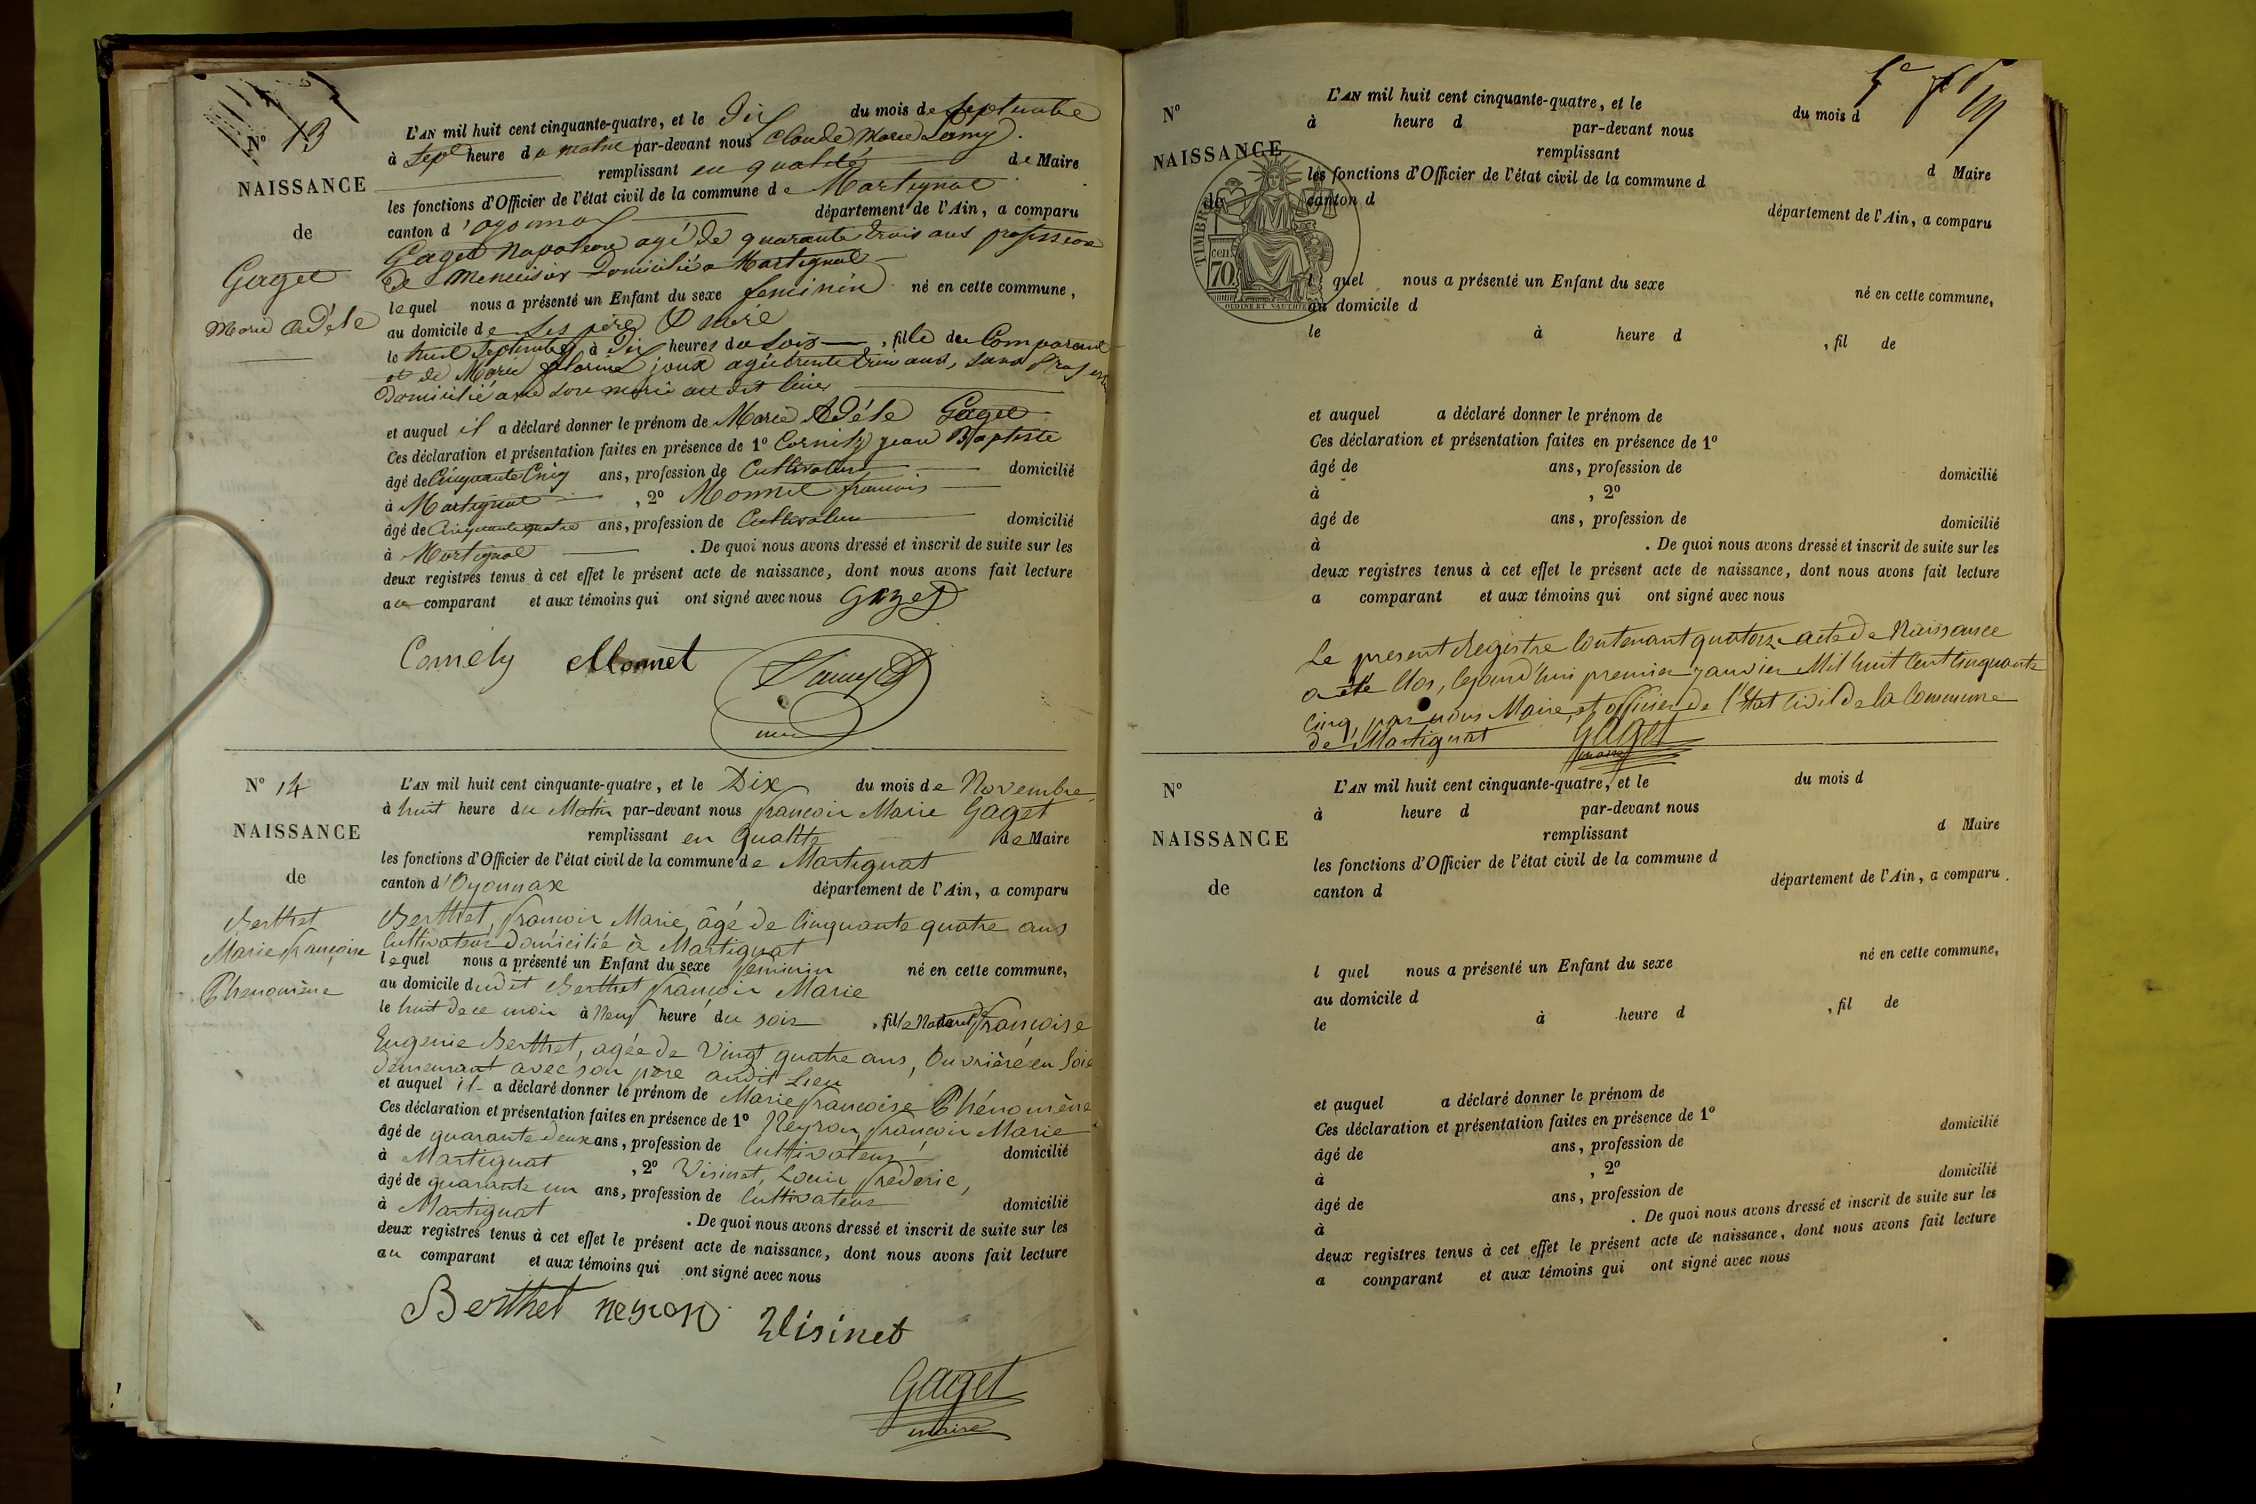 N° 13
NAISSANCE
de
Gaget
Marie Adéle
L'AN mil huit cent cinquante-quatre, et le Dix du mois de Septembre
à Sept heure du matin par-devant nous Claude Marie Lamy
remplissant en qualité de Maire
les fonctions d'Officier de l'état civil de la commune de Martignat
canton d'oyonnax département de l'Ain, a comparu
Gaget Napoleon agé de quarante trois ans profession
de Menuisier Domicilié a Martignat
lequel nous a présenté un Enfant du sexe feminin né en cette commune,
au domicile de Ses père & mère
le huit Septembre à Dix heures du Soir, fille du Comparant
et de Marie joux agée trente trois ans, sans
Domicilié avec son marie au dit lieu
et auquel il a déclaré donner le prénom de Marie Adéle Gaget
Ces déclaration et présentation faites en présence de 1° Cornely jean Baptiste
âgé de Cinquante Cinq ans, profession de Cultivateur domicilié
à Martignat, 2° Monnet francois
âgé de Cinquante quatre ans, profession de Cultivateur domicilié
à Martignat. De quoi nous avons dressé et inscrit de suite sur les
deux registres tenus à cet effet le présent acte de naissance, dont nous avons fait lecture
au comparant et aux témoins qui ont signé avec nous Gaget
Cornely Monnet Lamy
N° 14
NAISSANCE
de
Berthet
Marie françoise
Phenomène
L'AN mil huit cent cinquante-quatre, et le Dix du mois de Novembre
à huit heure du Matin par-devant nous françois Marie Gaget
remplissant en Qualité de Maire
les fonctions d'Officier de l'état civil de la commune de Martignat
canton d'Oyonnax département de l'Ain, a comparu
Berthet, françois Marie, âgé de Cinquante quatre ans
Cultivateur domicilié à Martignat
lequel nous a présenté un Enfant du sexe feminin né en cette commune,
au domicile dudit Berthet françois Marie
le huit de ce mois à Neuf heure du soir, fille Naturelle de françoise
Eugenie Berthet, agée de Vingt quatre ans, Ouvrière en Soie
demeurant avec son père audit Lieu
et auquel il a déclaré donner le prénom de Marie françoise Phénomène
Ces déclaration et présentation faites en présence de 1° Neyron françois Marie
âgé de quarante deux ans, profession de Cultivateur domicilié
à Martignat, 2° Visinet, Louis frederic,
âgé de quarante un ans, profession de Cultivateur domicilié
à Martignat. De quoi nous avons dressé et inscrit de suite sur les
deux registres tenus à cet effet le présent acte de naissance, dont nous avons fait lecture
au comparant et aux témoins qui ont signé avec nous
Berthet neyron Visinet
Gaget
maire
19
N°
NAISSANCE
de
TIMBRE
70 cen
L'AN mil huit cent cinquante-quatre, et le du mois d
à heure d par-devant nous
remplissant d Maire
les fonctions d'Officier de l'état civil de la commune d
canton d département de l'Ain, a comparu
l quel nous a présenté un Enfant du sexe né en cette commune,
au domicile d
le à heure d , fil de
et auquel a déclaré donner le prénom de
Ces déclaration et présentation faites en présence de 1°
âgé de ans, profession de domicilié
à , 2°
âgé de ans, profession de domicilié
à . De quoi nous avons dressé et inscrit de suite sur les
deux registres tenus à cet effet le présent acte de naissance, dont nous avons fait lecture
a comparant et aux témoins qui ont signé avec nous
Le présent Registre Contenant quatorze acte de Naissance
a été Clos, Cejourd'hui premier janvier Mil huit Cent Cinquante
Cinq, par nous Maire, et officier de l'Etat Civil de la Commune
de Martignat Gaget
maire
N°
NAISSANCE
de
L'AN mil huit cent cinquante-quatre, et le du mois d
à heure d par-devant nous
remplissant d Maire
les fonctions d'Officier de l'état civil de la commune d
canton d département de l'Ain, a comparu
l quel nous a présenté un Enfant du sexe né en cette commune,
au domicile d
le à heure d , fil de
et auquel a déclaré donner le prénom de
Ces déclaration et présentation faites en présence de 1°
âgé de ans, profession de domicilié
à , 2°
âgé de ans, profession de domicilié
à . De quoi nous avons dressé et inscrit de suite sur les
deux registres tenus à cet effet le présent acte de naissance, dont nous avons fait lecture
a comparant et aux témoins qui ont signé avec nous